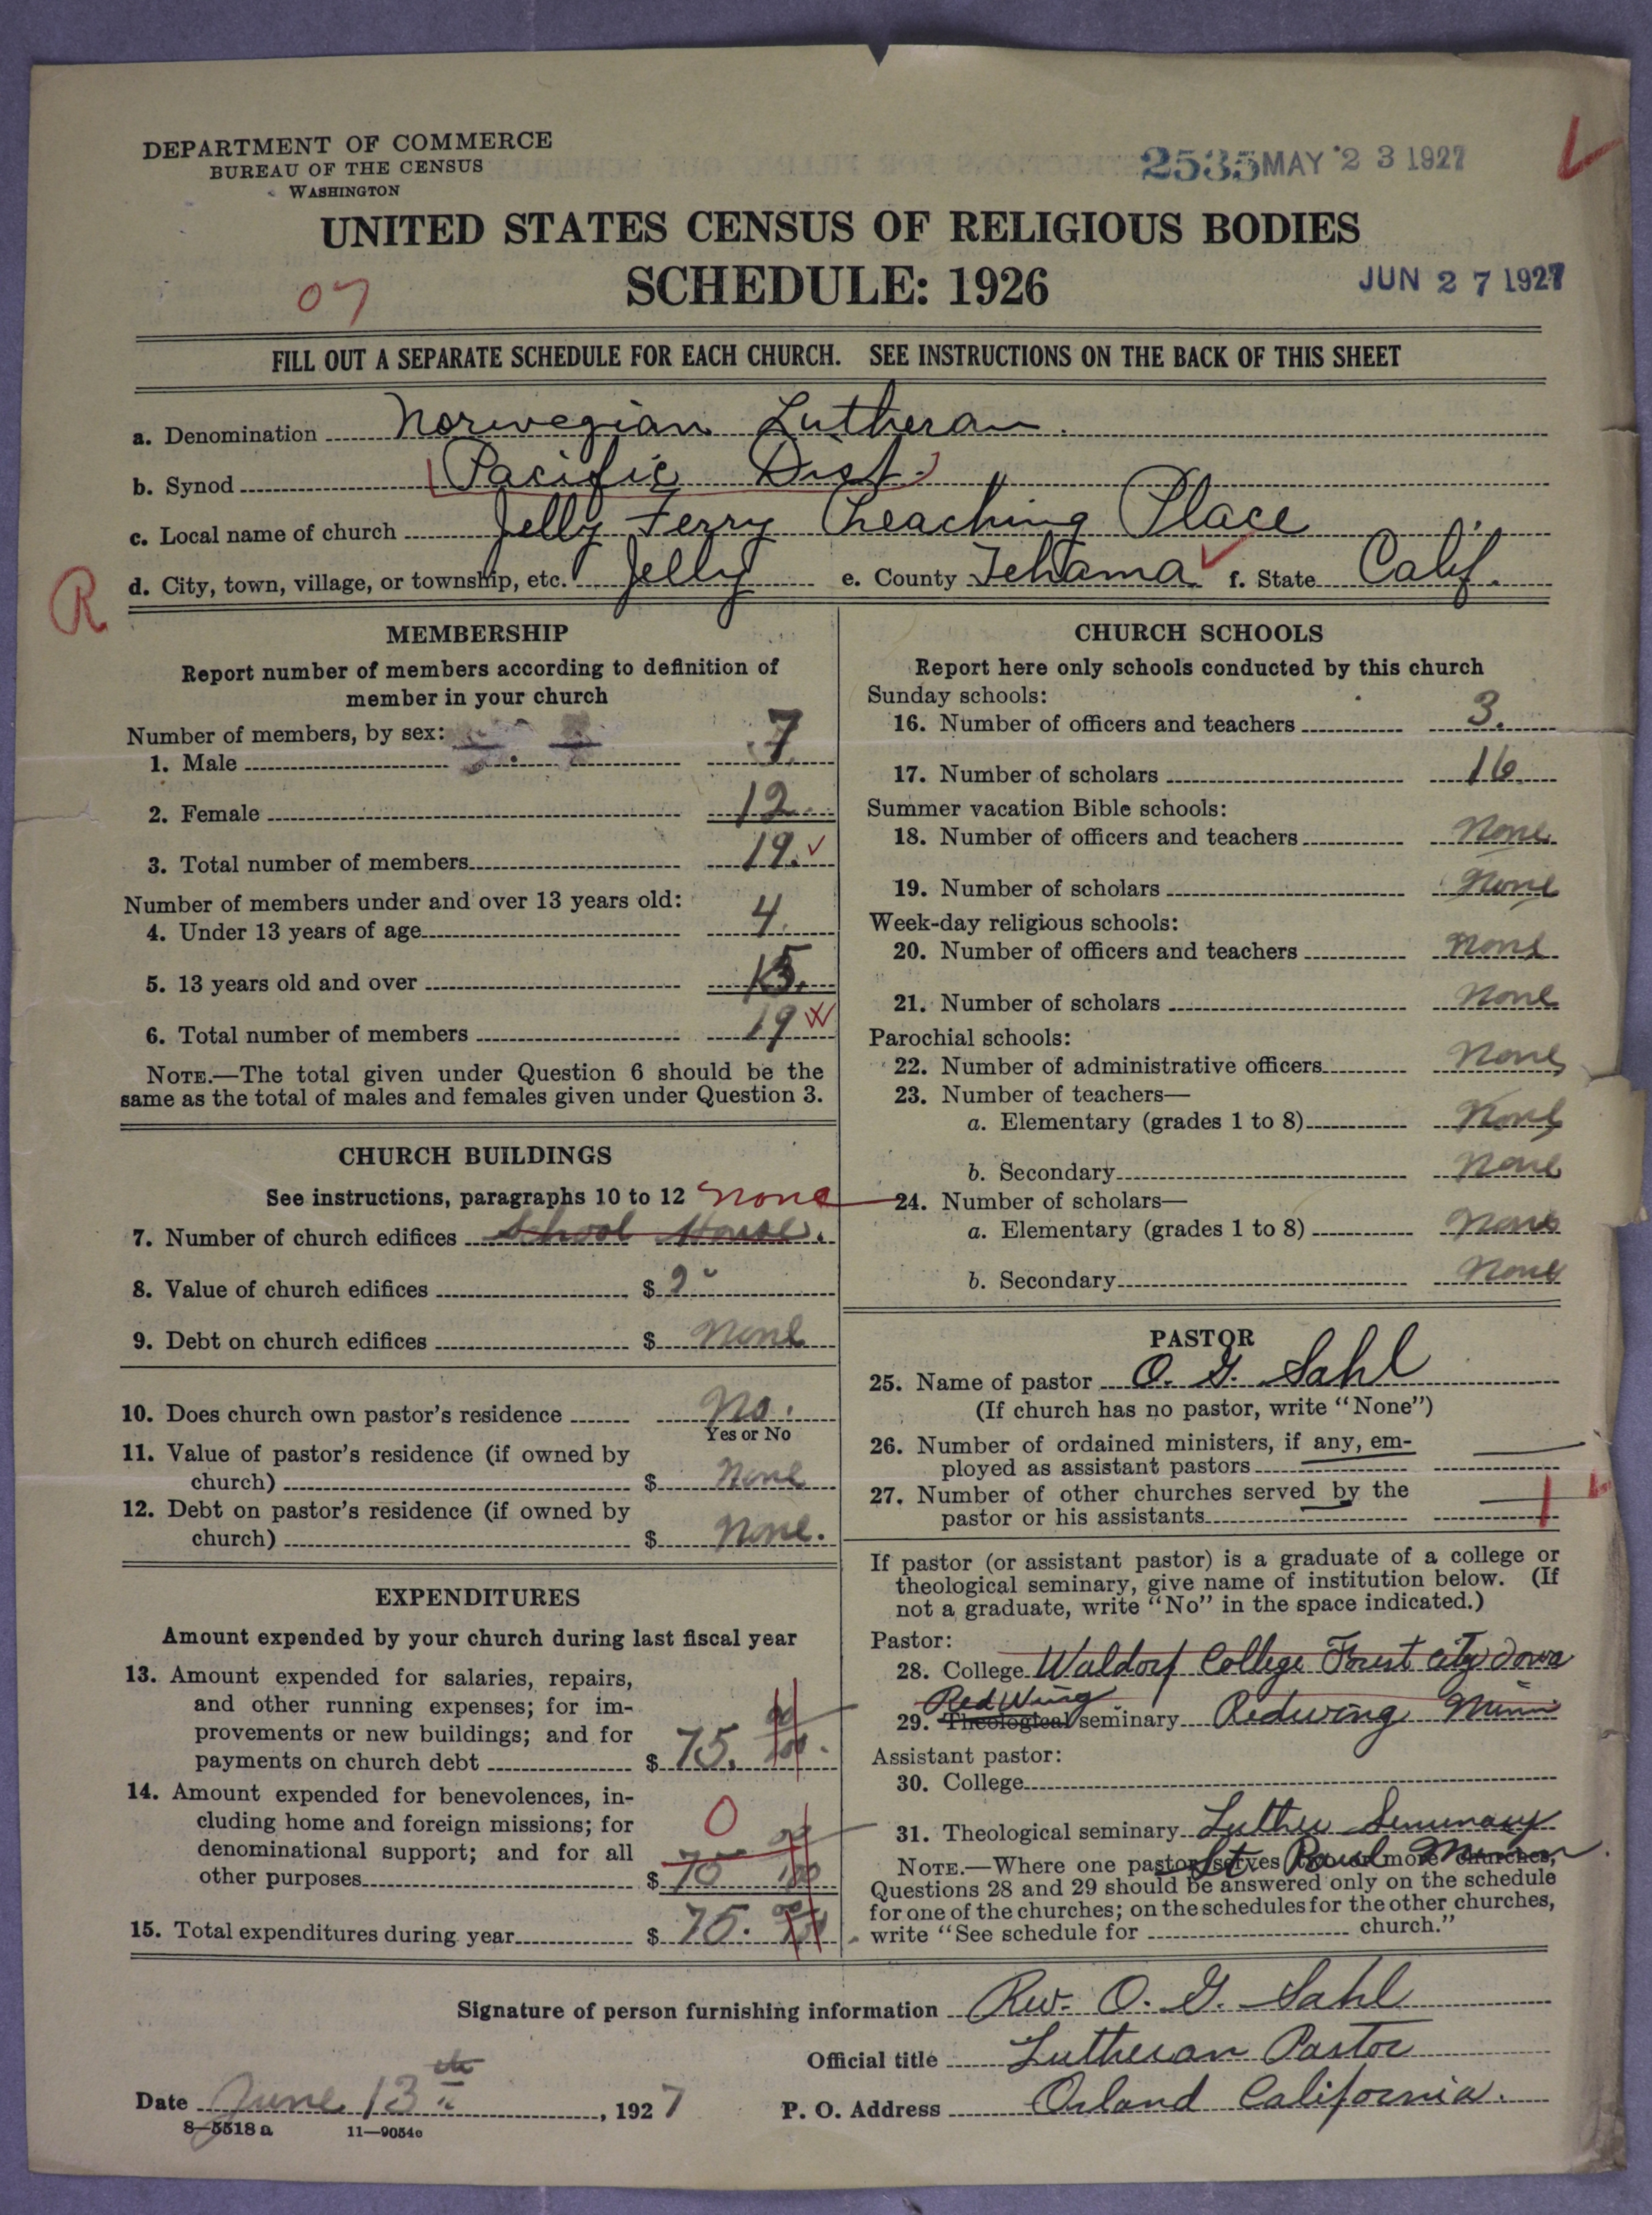 DEPARTMENT OF COMMERCE
BUREAU OF THE CENSUS
WASHINGTON
2535 MAY 23 1927
UNITED STATES CENSUS OF RELIGIOUS BODIES
SCHEDULE: 1926
JUN 27 1927
07
FILL OUT A SEPARATE SCHEDULE FOR EACH CHURCH. SEE INSTRUCTIONS ON THE BACK OF THIS SHEET
a. Denomination Norwegian Lutheran.
b. Synod (Pacific Dist.)
c. Local name of church Jelly Ferry Preaching Place
d. City, town, village, or township, etc. Jelly e. County Tehama f. State Calif.
R
MEMBERSHIP
Report number of members according to definition of
member in your church
Number of members, by sex:
1. Male 7.
2. Female 12
3. Total number of members 19.
Number of members under and over 13 years old:
4. Under 13 years of age 4.
5. 13 years old and over 15.
6. Total number of members 19
NOTE.—The total given under Question 6 should be the
same as the total of males and females given under Question 3.
CHURCH BUILDINGS
See instructions, paragraphs 10 to 12 none
7. Number of church edifices School House.
8. Value of church edifices $
9. Debt on church edifices $ None
10. Does church own pastor's residence No.
Yes or No
11. Value of pastor's residence (if owned by
church) $ None
12. Debt on pastor's residence (if owned by
church) $ None.
EXPENDITURES
Amount expended by your church during last fiscal year
13. Amount expended for salaries, repairs,
and other running expenses; for im-
provements or new buildings; and for
payments on church debt $ 75. 00/100
14. Amount expended for benevolences, in-
cluding home and foreign missions; for
denominational support; and for all
other purposes 0 $ 75 00/100
15. Total expenditures during year $ 75. 00/100
CHURCH SCHOOLS
Report here only schools conducted by this church
Sunday schools:
16. Number of officers and teachers 3.
17. Number of scholars 16
Summer vacation Bible schools:
18. Number of officers and teachers None
19. Number of scholars None
Week-day religious schools:
20. Number of officers and teachers None
21. Number of scholars None
Parochial schools:
22. Number of administrative officers None
23. Number of teachers—
a. Elementary (grades 1 to 8) None
b. Secondary None
24. Number of scholars—
a. Elementary (grades 1 to 8) None
b. Secondary None
PASTOR
25. Name of pastor O. G. Sahl
(If church has no pastor, write "None")
26. Number of ordained ministers, if any, em-
ployed as assistant pastors
27. Number of other churches served by the
pastor or his assistants 1
If pastor (or assistant pastor) is a graduate of a college or
theological seminary, give name of institution below. (If
not a graduate, write "No" in the space indicated.)
Pastor:
28. College Waldorf College Forest City Iowa
Red Wing
29. Theological seminary Redwing Minn
Assistant pastor:
30. College
31. Theological seminary Luther Seminary
St. Paul Minn.
NOTE.—Where one pastor serves two or more churches,
Questions 28 and 29 should be answered only on the schedule
for one of the churches; on the schedules for the other churches,
write "See schedule for church."
Signature of person furnishing information Rev. O. G. Sahl
Official title Lutheran Pastor
Date June 13th, 1927 P. O. Address Orland California.
8—5518 a 11—9054c